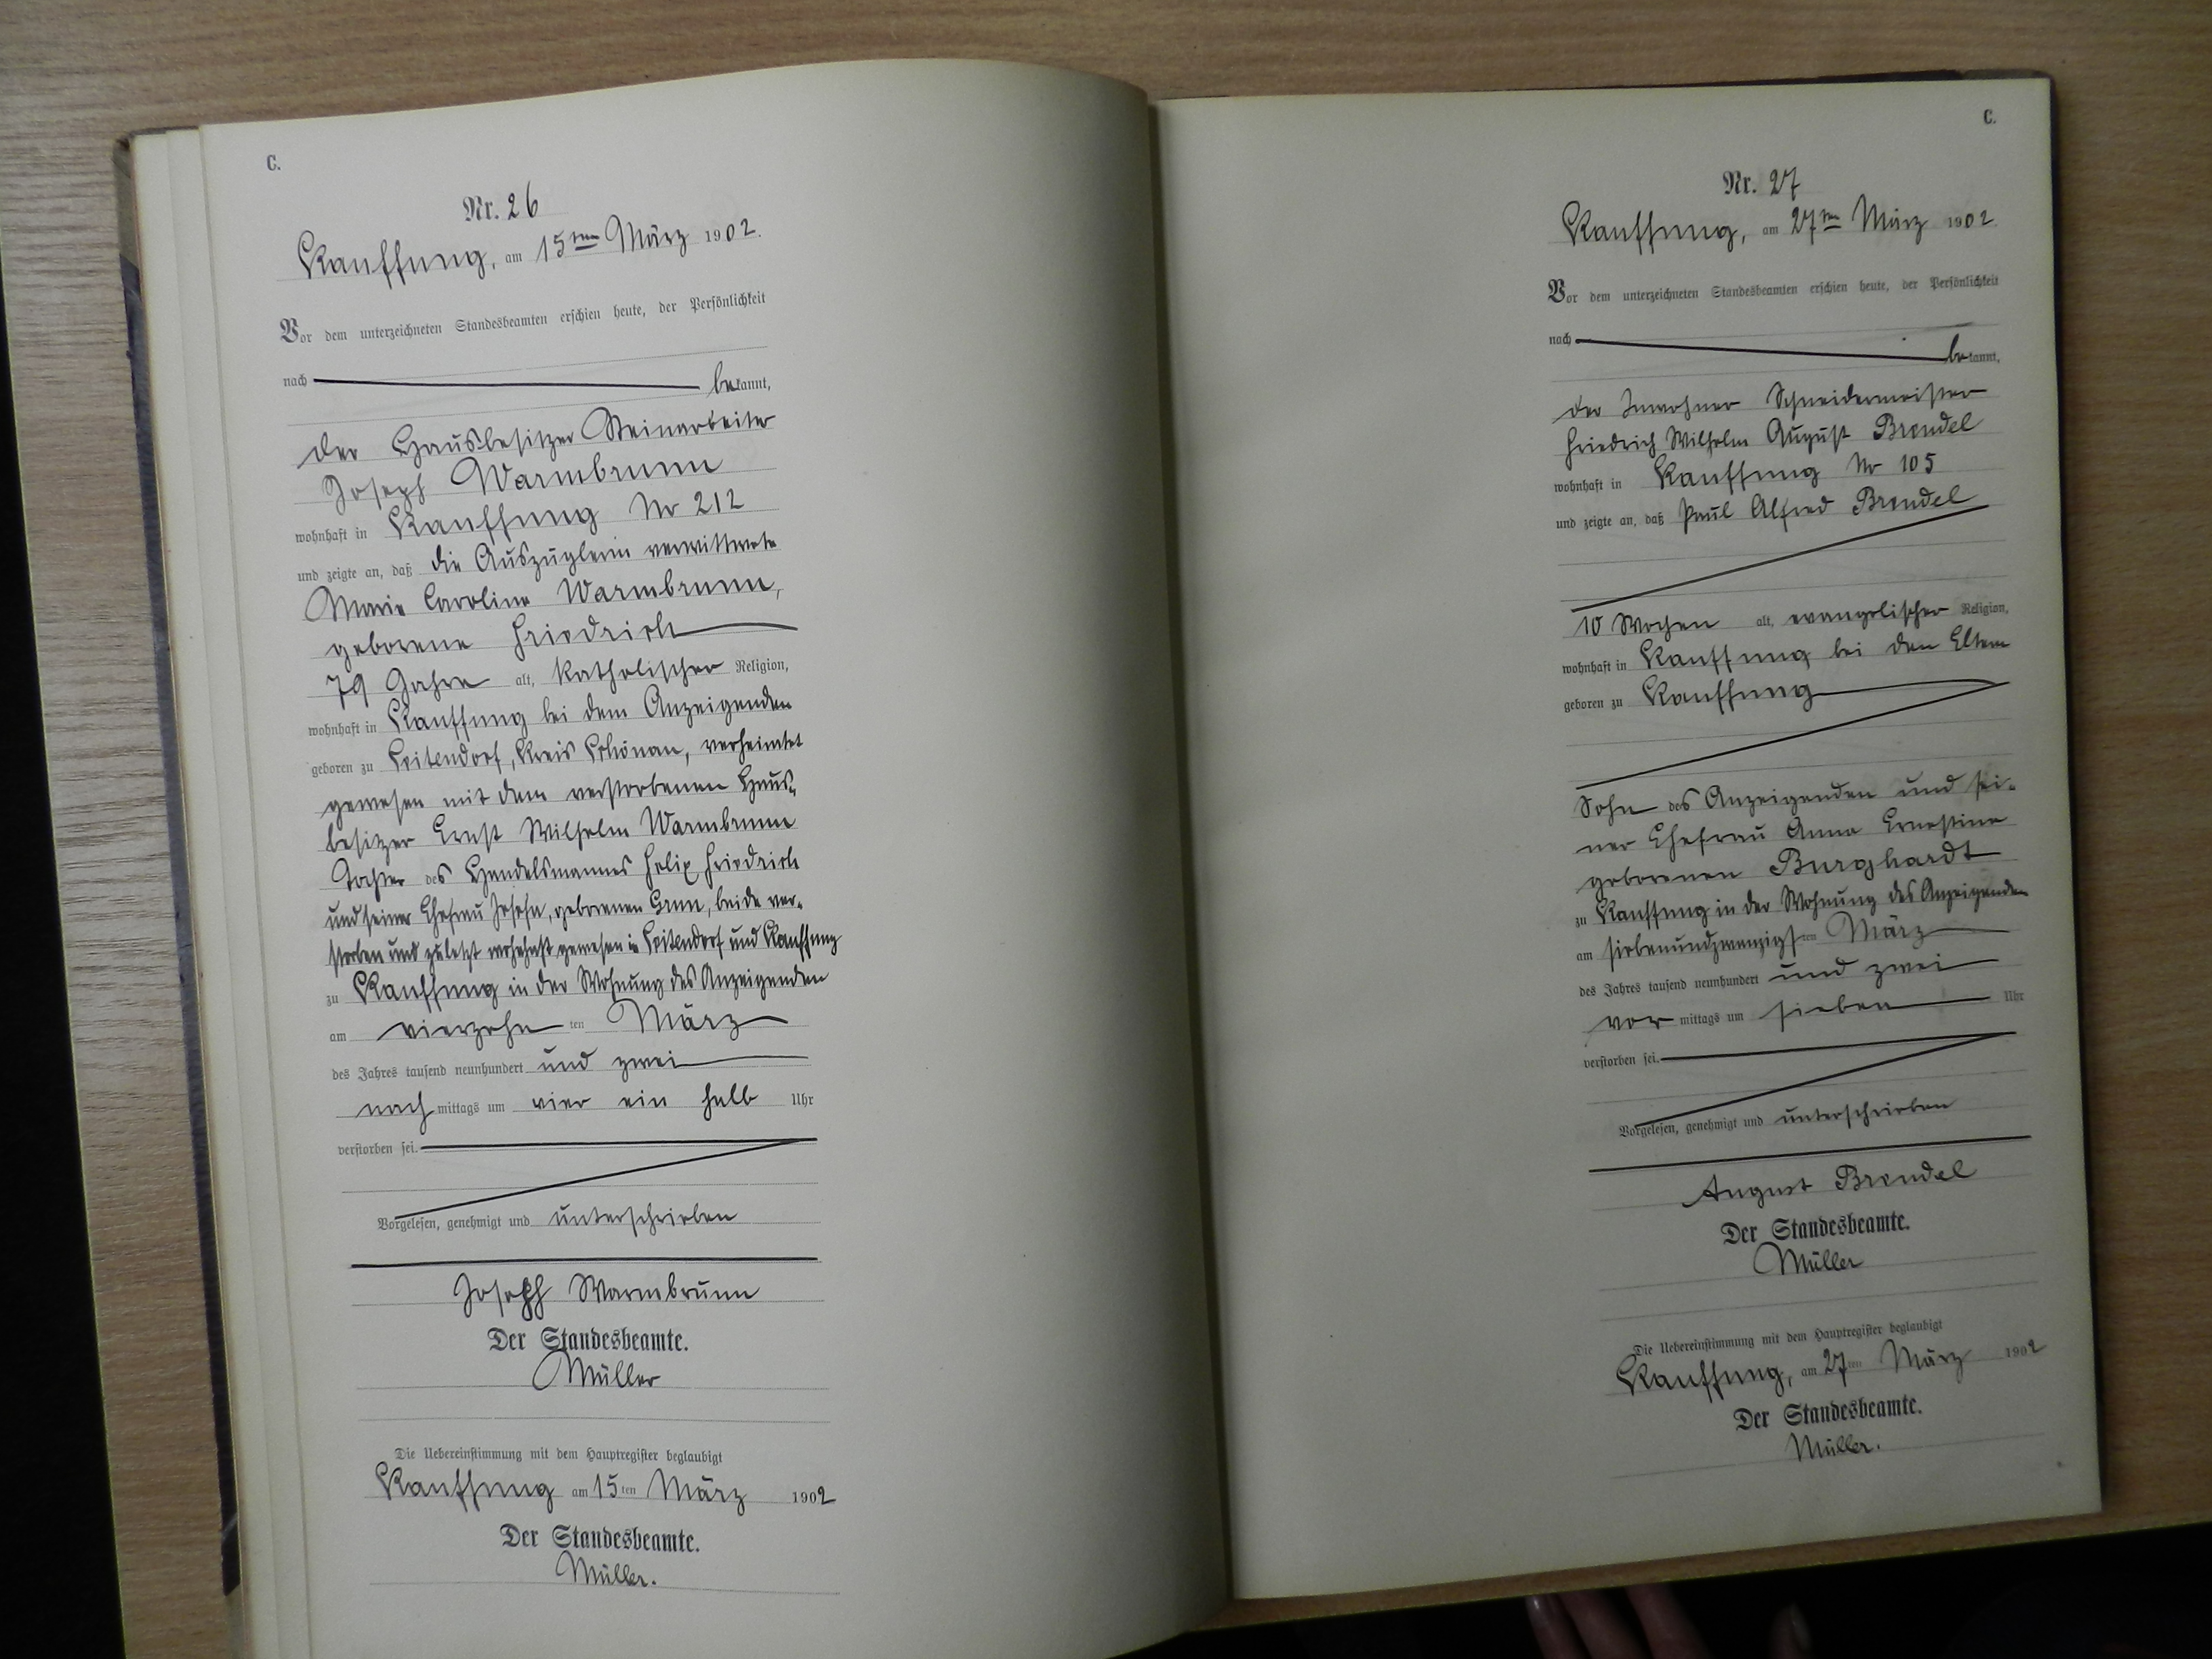 C.
Nr. 26
Kauffung, am 15ten März 1902.
Vor dem unterzeichneten Standesbeamten erschien heute, der Persönlichkeit
nach bekannt,
der Hausbesitzer Steinarbeiter
Joseph Warmbrunn
wohnhaft in Kauffung No 212
und zeigte an, daß die Auszüglerin verwittwete
Marie Caroline Warmbrunn,
geborene Friedrich
79 Jahre alt, katholischer Religion,
wohnhaft in Kauffung bei dem Anzeigenden
geboren zu Kreis Schönau, verheiratet
gewesen mit dem verstorbenen Haus-
besitzer Ernst Wilhelm Warmbrunn
Tochter des Handelsmannes Felix Friedrich
und seiner Ehefrau geborenen beide ver-
storben und zuletzt wohnhaft gewesen in und Kauffung
zu Kauffung in der Wohnung des Anzeigenden
am vierzehnten März
des Jahres tausend neunhundert und zwei
nachmittags um vier ein halb Uhr
verstorben sei.
Vorgelesen, genehmigt und unterschrieben
Joseph Warmbrunn
Der Standesbeamte.
Müller
Die Uebereinstimmung mit dem Hauptregister beglaubigt
Kauffung am 15ten März 1902
Der Standesbeamte.
Müller.
C.
Nr. 27
Kauffung, am 27ten März 1902.
Vor dem unterzeichneten Standesbeamten erschien heute, der Persönlichkeit
nach bekannt,
der Inwohner Schneidermeister
Friedrich Wilhelm August Brendel
wohnhaft in Kauffung No 105
und zeigte an, daß Paul Alfred Brendel
10 Wochen alt, evangelischer Religion,
wohnhaft in Kauffung bei den Eltern
geboren zu Kauffung
Sohn des Anzeigenden und sei-
ner Ehefrau Anna Ernestine
geborenen Burghardt
zu Kauffung in der Wohnung des Anzeigenden
am siebenundzwanzigsten März
des Jahres tausend neunhundert und zwei
vormittags um sieben Uhr
verstorben sei.
Vorgelesen, genehmigt und unterschrieben
August Brendel
Der Standesbeamte.
Müller
Die Uebereinstimmung mit dem Hauptregister beglaubigt
Kauffung, am 27ten März 1902
Der Standesbeamte.
Müller.